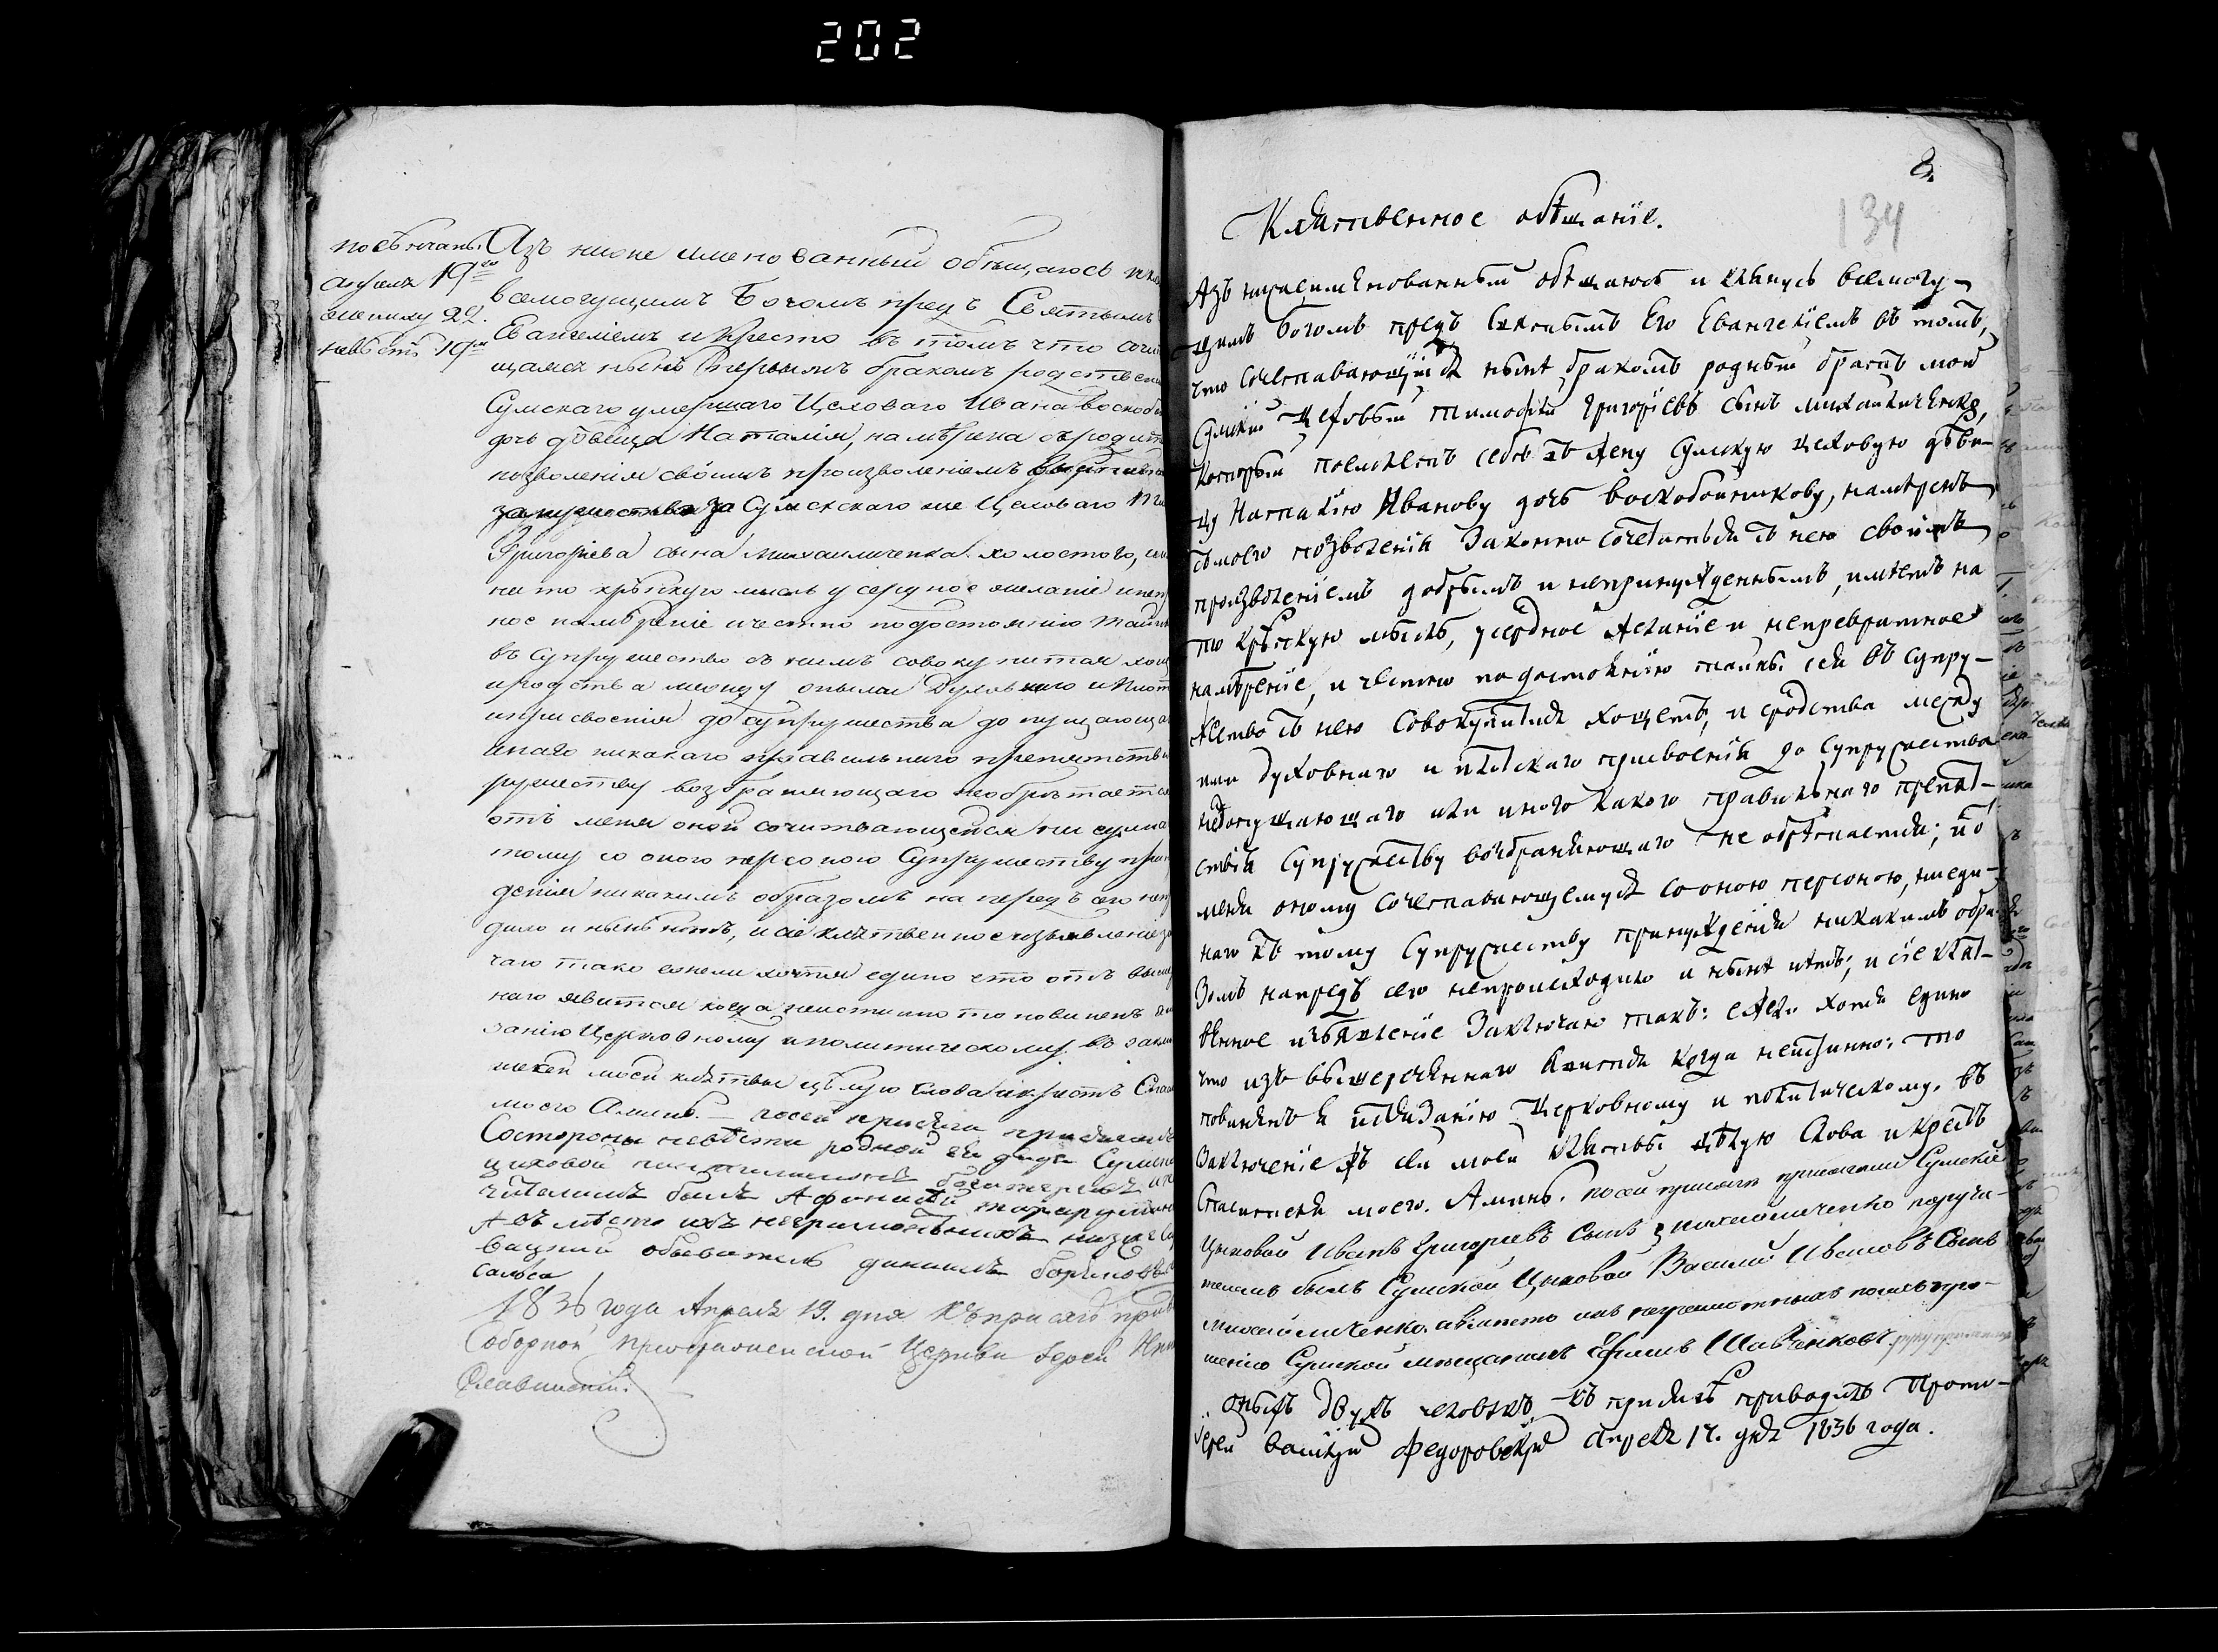 202
повѣнчаны
апреля 19го
жениху 22.
невѣстѣ 19ть
Азъ ниже именованный обѣщаюсь и кля
всемогущимъ Богомъ предъ Святымъ
Евангелiемъ и Кресто въ томъ что соче
щаяся нынѣ первымъ бракомъ родствен
Сумскаго умершаго Цеховаго Ивана Воскобо
дочь дѣвица Наталiя, намѣрена съ родит
позволенiя своимъ произволенiемъ
за Сумскаго же Цеховаго
Григорiева сына Михаиличенка холостого,
на то крѣпкую мысль усердное желанiе и неп
ное намѣренiе и честно по достоянiю тайны
въ Супружество съ нимъ совокупится хощ
и родства между оныма Духовнаго и плот
и присвоенiя до супружества допущающа
инаго никакаго правильнаго препятств
ружеству возбраняющаго не обрѣтается
отъ меня оной сочитавающейся ни
тому со оною персоною Супружеству при
денiя никакимъ образомъ на передъ сего неп
дило и нынѣ нѣтъ, и сiе клятвенное изъявленiе за
чаю тако ежели хотя едино что отъ выше
наго явится когда неистинно то повиненъ
занiю Церковному и политическому. въ закл
же сей моей клятвы цѣлую слова и крестъ Спас
моего Аминь. — посей присяги присягалъ
Состороны невѣсты родной ея дядя Сумск
цеховой
чителемъ былъ Афанасiй
А въ мѣсто ихъ неграмотныхъ
обыватель данiилъ

1836 года Апреля 19. дня Къ присягѣ прив
Соборной Преображенской Церкви Iерей
Славинскiй.
8.
134
Клятвенное обѣщанiе.
Азъ нижеимянованный обѣщаюсь и клянусь всемогу-
щимъ Богомъ предъ святымъ Его Евангелiемъ въ томъ,
что сочетавающiйся нынѣ бракомъ родный братъ мой
Сумкiй Цеховый Тимофѣй Григорiевъ сынъ Михайличенко,
который поемлетъ себѣ въ жену Сумскую цеховую дѣви-
цу Наталiю Иванову дочь Воскобойникову, намѣренъ
съ моего позволенiя Законно сочетаться съ нею своимъ
произволенiемъ добрымъ и непринужденнымъ, имѣетъ на
то крѣпкую мысль, усердное желанiе и непревратное
намѣренiе, и честно по достоянiю тайны сея въ супру-
жество съ нею совокупится хощетъ, и сродства между
ими духовнаго и плотскаго присвоенiя до Супружества
недопущающаго или иного какого правильнаго препят-
ствiя Супружеству возбраняющаго не обрѣтается; и ѿ
меня оному сочетавающемуся со оною персоною, ниеди-
наго къ тому Супружеству принужденiя никакимъ обра-
зомъ напредъ сего непроисходило и нынѣ нѣтъ; и сiе клят-
венное изъявленiе Заключаю такъ: ежели хотя едино
что изъ вышереченнаго явится когда неистинно: то
повиненъ я истязанiю Церковному и политическому. въ
Заключенiе же сей моей клятвы цѣлую слова и крестъ
Спасителя моего. Аминь. по сей присяги присягали Сумскiе
Цеховой Иванъ Григорiевъ сынъ Михайличенко поручи-
телемъ былъ Сумской Цеховой Василiй Ивановъ Сынъ
Михайличенко. авместо ихъ неграмотныхъ по ихъ про-
шенiю Сумской мещанинъ Ефимъ Шавченковъ
оныхъ двухъ человѣкъ къ присягѣ приводилъ Прото-
iерей Василiй Федоровскiй Апреля 17. дня 1836 года.